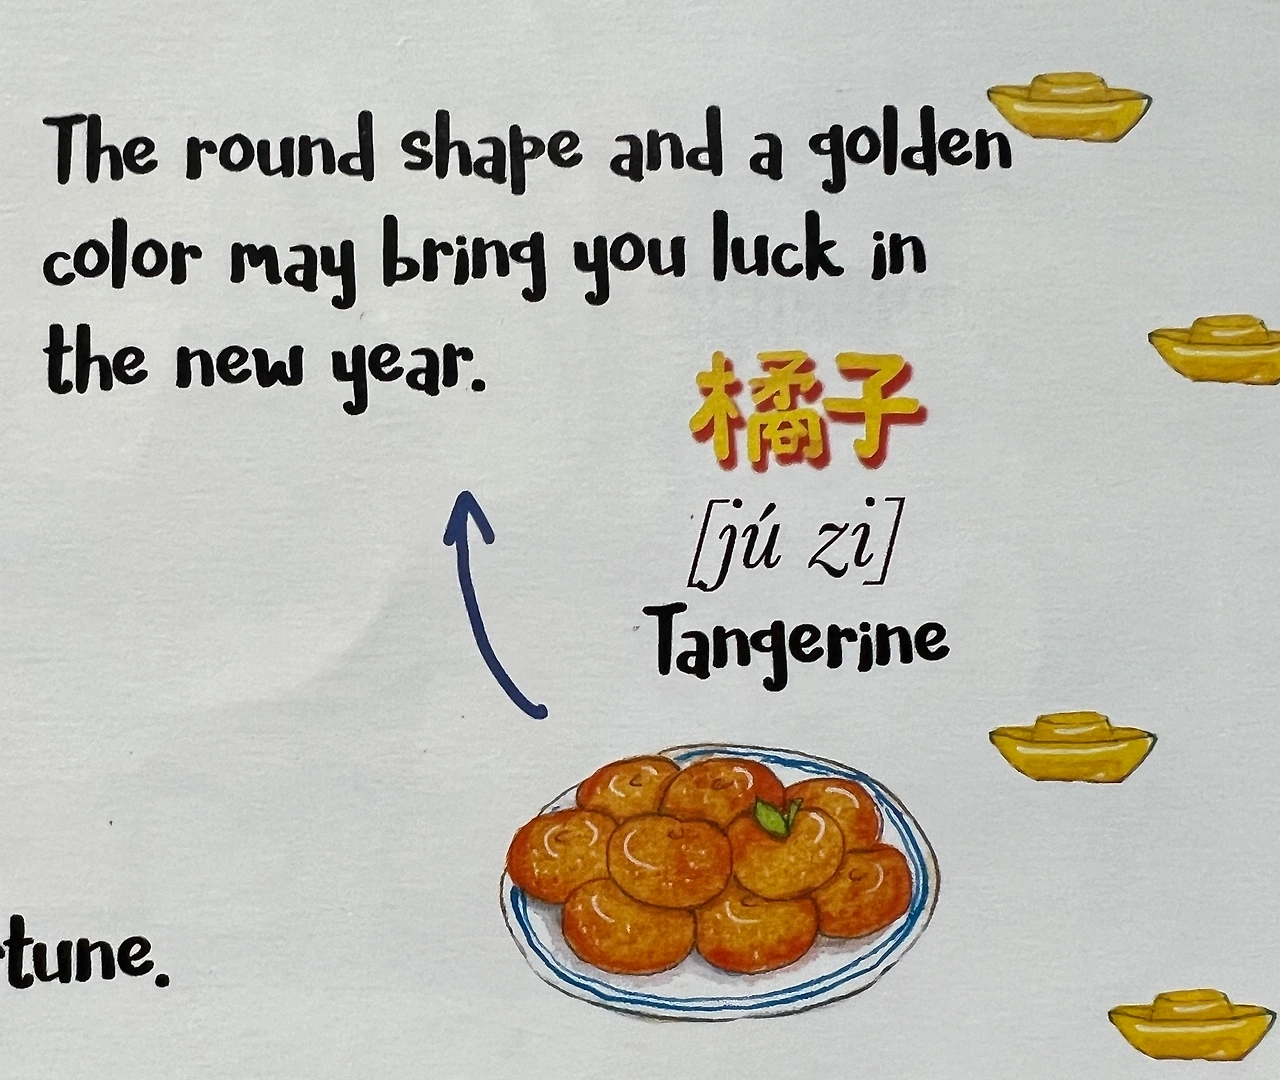 The round shape and a golden
color may bring you luck in
the new year.
橘子
[jú zi]
Tangerine
tune.